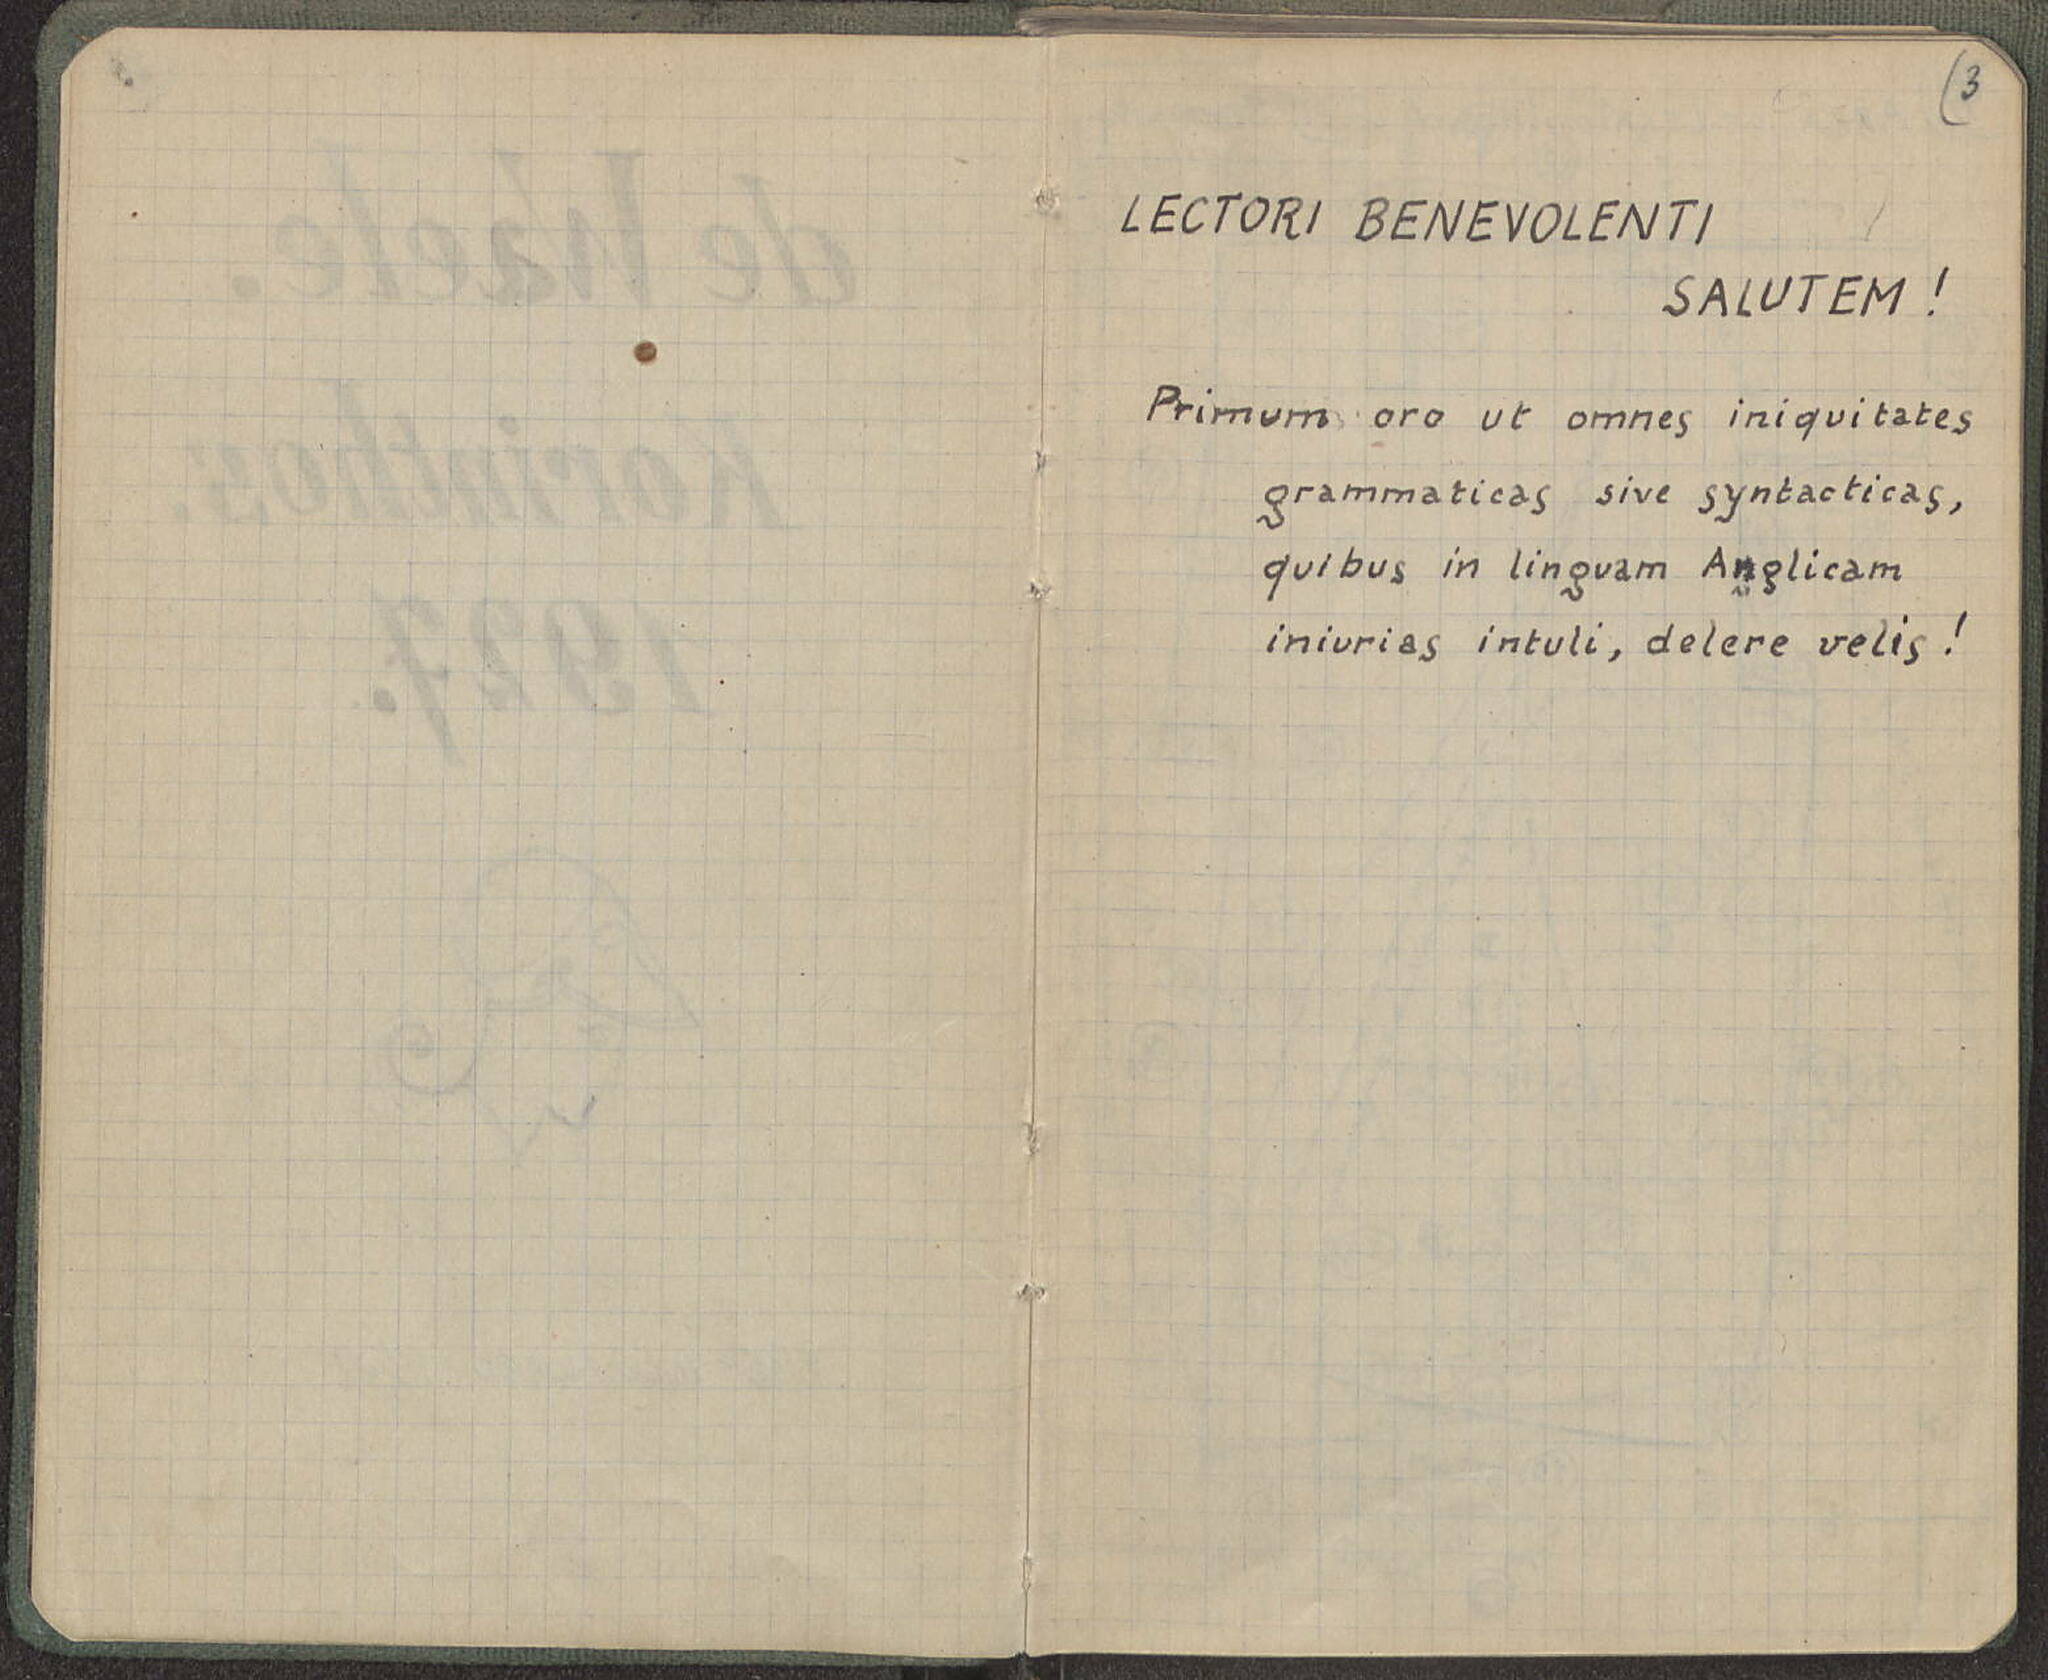 de Waele.
Korinthos.
1927.
(3
LECTORI BENEVOLENTI
SALUTEM!
Primum oro ut omnes iniquitates
grammaticas sive syntacticas,
quibus in linguam Anglicam
iniurias intuli, delere velis!